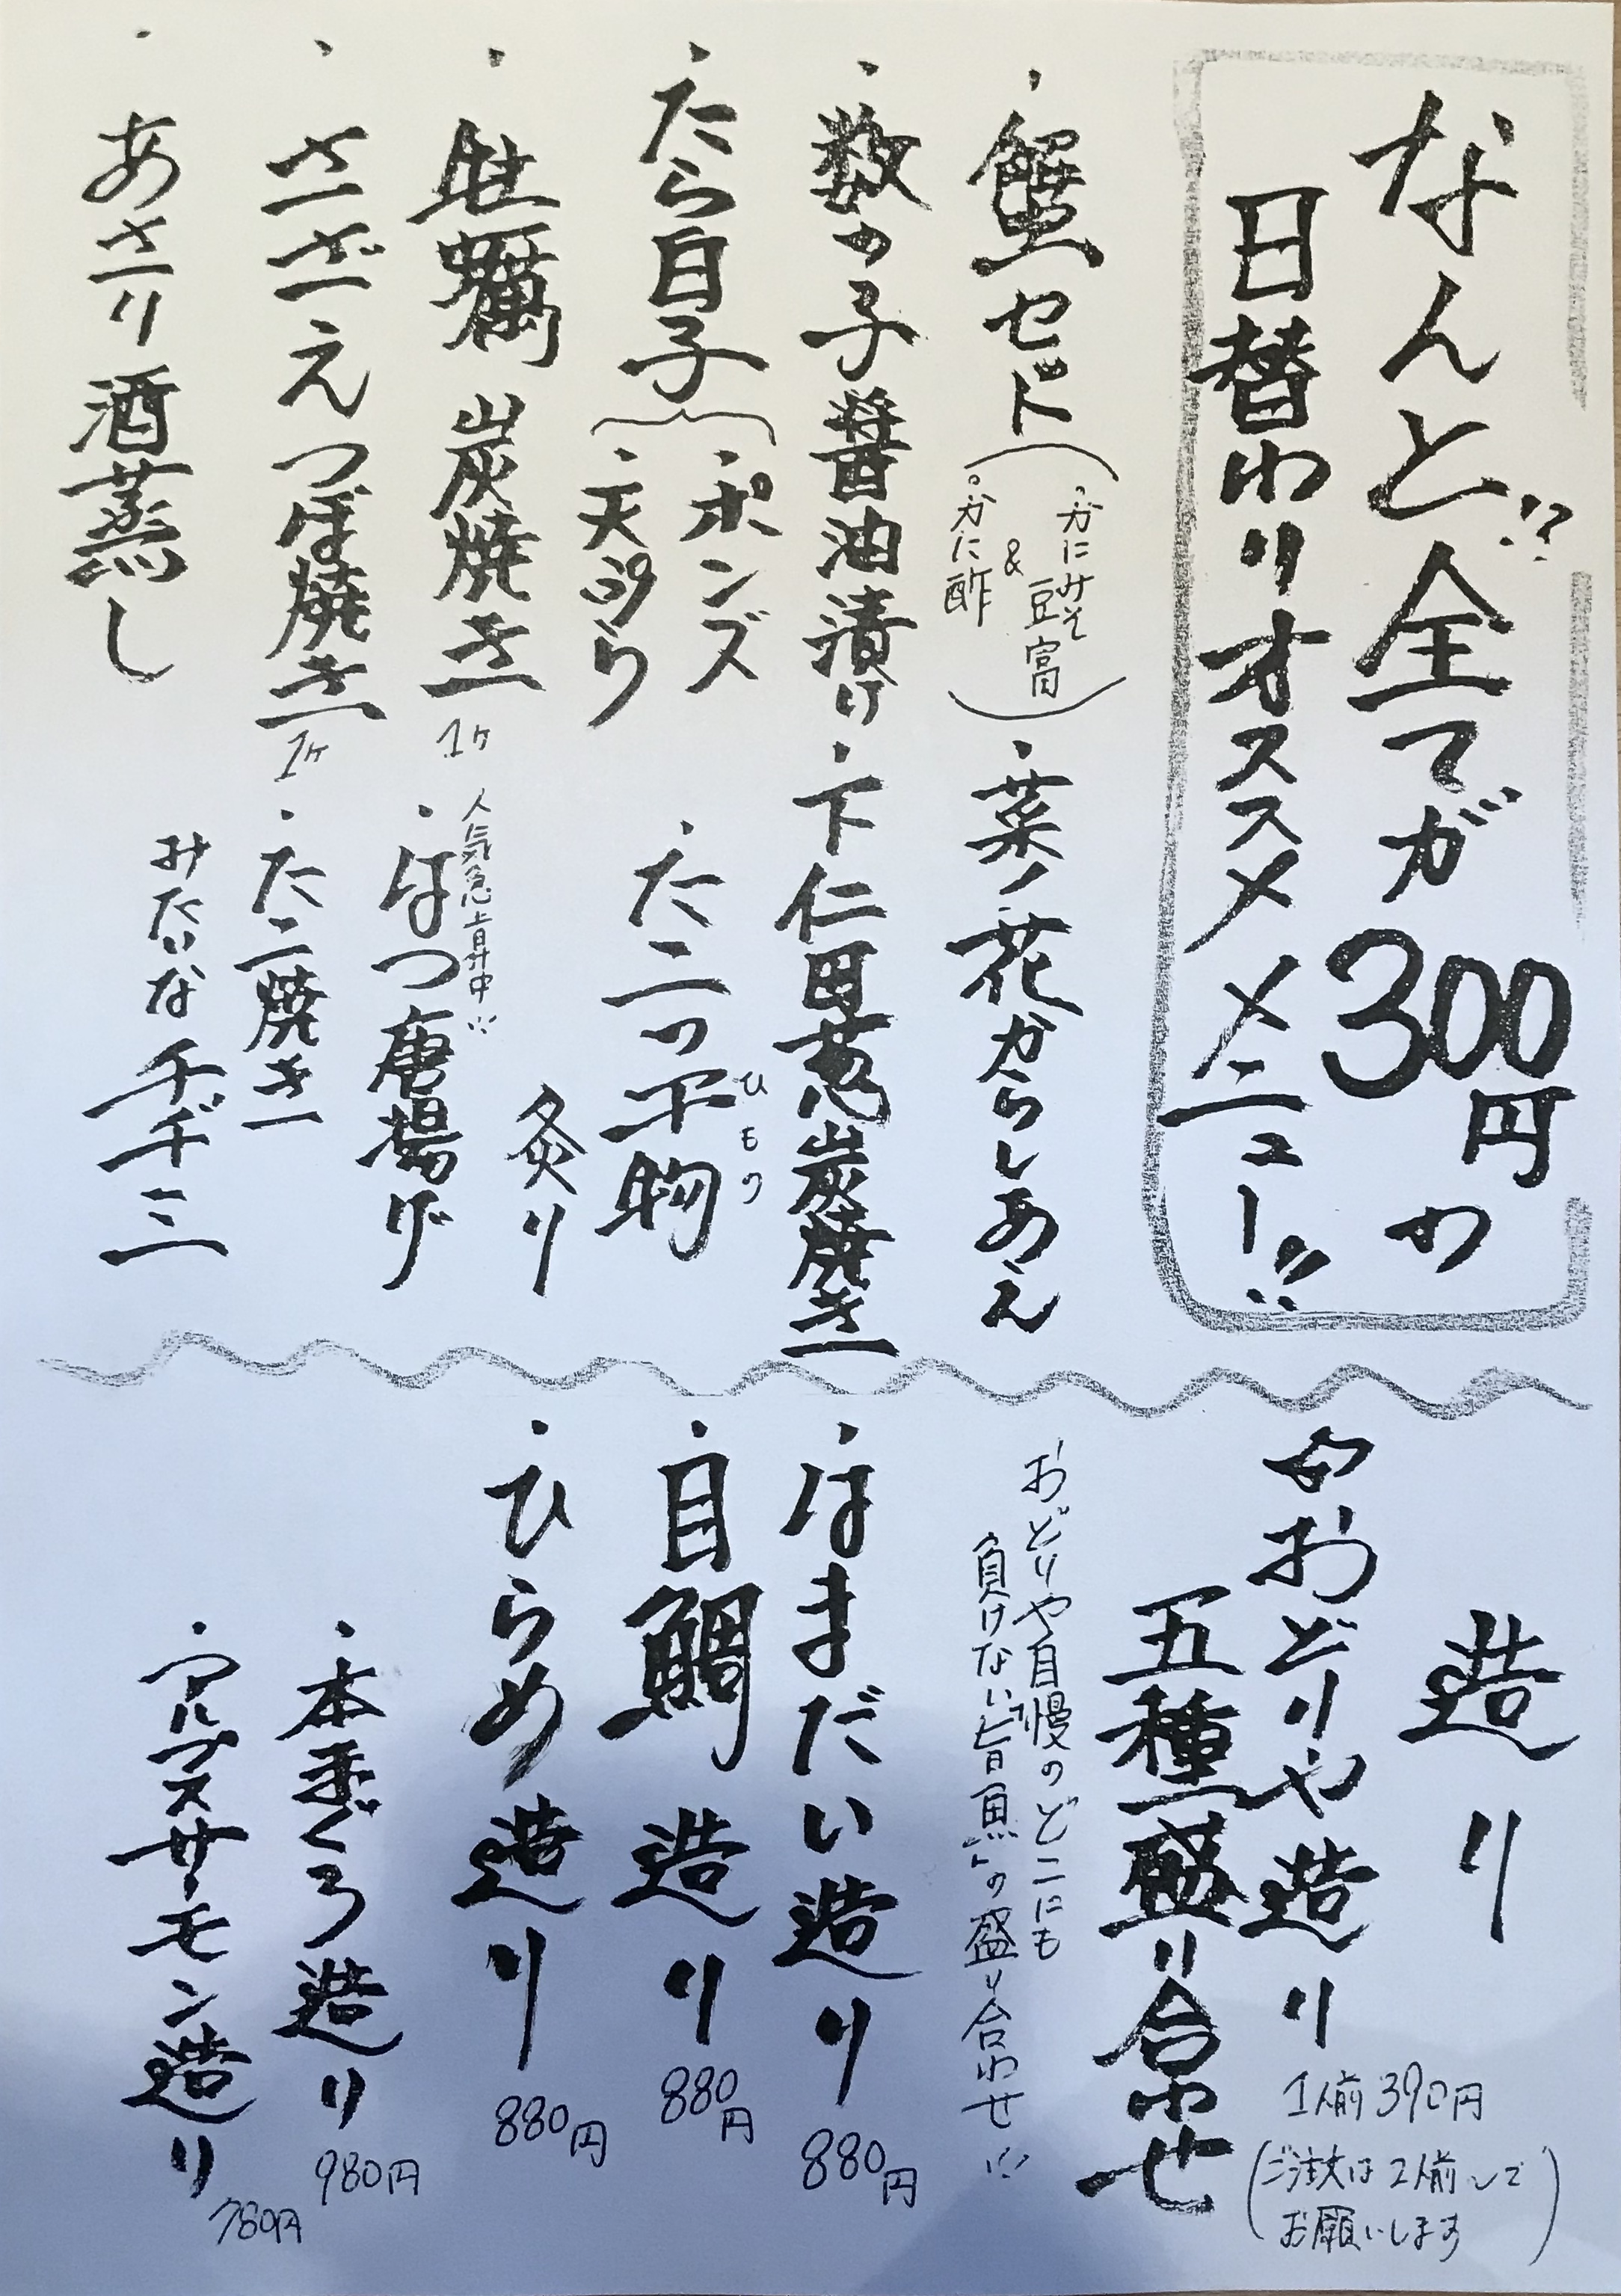 なんと!?全てガ300円の
日替わりオススメメニュー!!
・蟹セット
(。かにみそ豆富
&
。かに酢)
・菜ノ花からしあえ
・数の子醤油漬け
・下仁田葱炭焼き
・たら白子
・ポンズ
・天ぷら
・たこの干物
ひもの
炙り
・牡蠣 炭焼き 1ヶ
人気急上昇中!!
・はつ唐揚げ
・さざえつぼ焼き 1ヶ
・たこ焼き
みたいなチヂミ
・あさり酒蒸し
造り
おどりや造り
五種盛り合わせ
1人前390円
(ご注文は2人前〜で
お願いします)
おどりや自慢のどこにも
負けない「旨魚」の盛り合わせ!!
・はまだい造り 880円
・目鯛 造り 880円
・ひらめ造り 880円
・本まぐろ造り 980円
・アルプスサーモン造り 780円